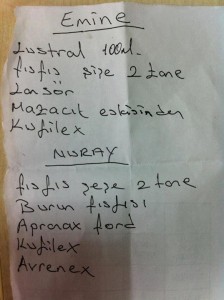 Emine
Lustral 100ml.
fısfıs şişe 2 tane
Lansör
Mazacıt eskisinden
Kufilex
NURAY
fısfıs şeşe 2 tane
Burun fısfısı
Apronax ford
Kufilex
Avrenex